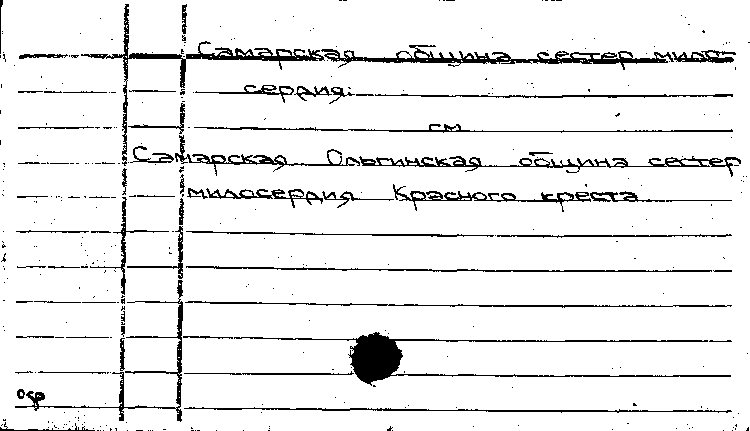 Самарская община сестер мило-
сердия.
см
Самарская Ольгинская община сестер
милосердия Красного креста